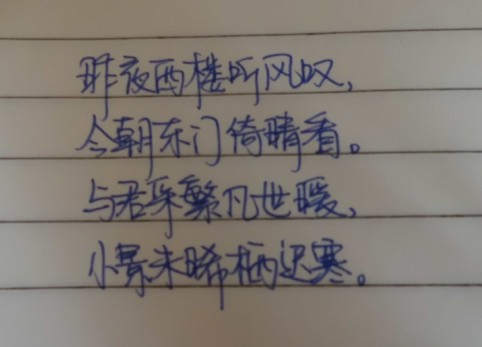 昨夜西楼听风叹，
今朝东门倚晴看。
与君采繁凡世暖，
小景未晞栖迟寒。